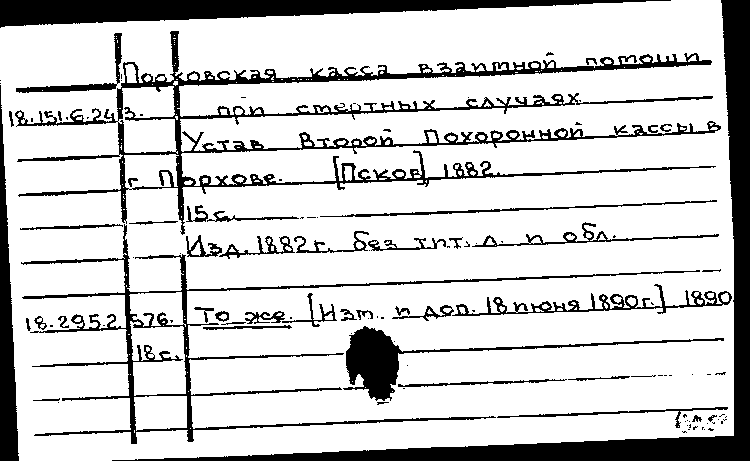 Порховская касса взаимной помощи
18.151.6.243. при смертных случаях
Устав Второй Похоронной кассы в
г. Порхове. [Псков], 1882.
15 с.
Изд. 1882 г. без тит. л. и обл.
18.295.2.576. То же. [Изм. и доп. 18 июня 1890 г.] 1890
18 с.